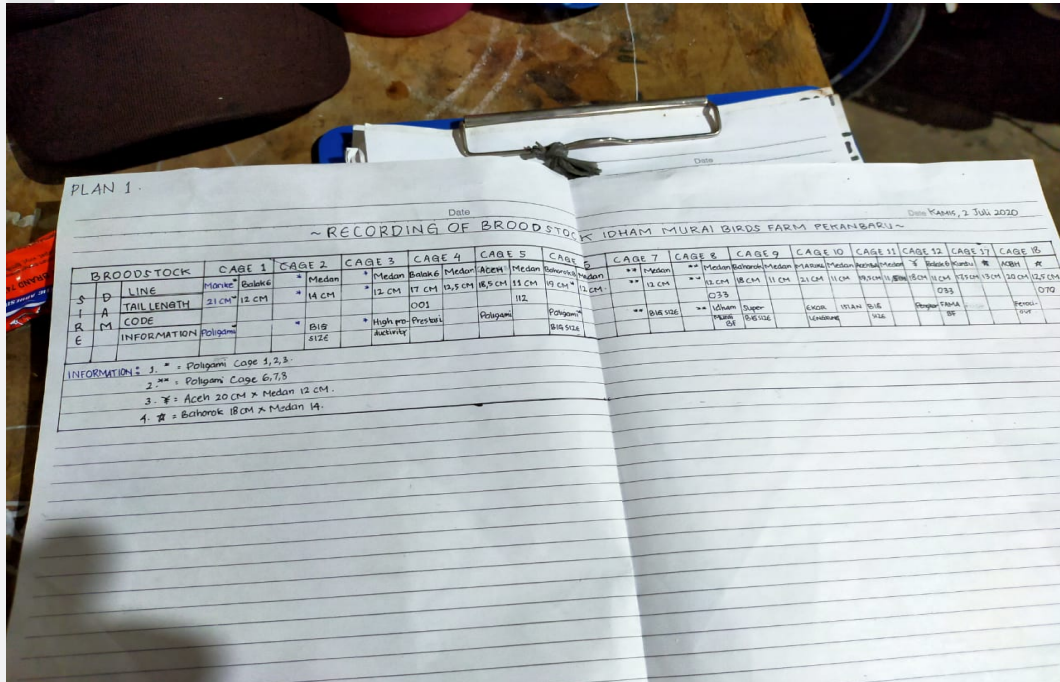 PLAN 1.
Date
Date
Date KAMIS, 2 Juli 2020
~ RECORDING OF BROODSTOCK IDHAM MURAI BIRDS FARM PEKANBARU ~
BROODSTOCK CAGE 1 CAGE 2 CAGE 3 CAGE 4 CAGE 5 CAGE 6 CAGE 7 CAGE 8 CAGE 9 CAGE 10 CAGE 11 CAGE 12 CAGE 17 CAGE 18
SIRE DAM
LINE Marike* Balak6 * Medan * Medan Balak6 Medan ACEH Medan Bahorok Medan ** Medan ** Medan Bahorok Medan MARIKE Medan Medan Balak6 ACEH
TAIL LENGTH 21 CM* 12 CM * 14 CM * 12 CM 17 CM 12,5 CM 18,5 CM 11 CM 19 CM* 12 CM. ** 12 CM ** 12 CM 18 CM 11 CM 21 CM 11 CM 19,5 CM 18 CM 12 CM 17,5 CM 13 CM 20 CM 12,5 CM
CODE 001 112 033 033 070
INFORMATION Poligami * BIG SIZE * High productivity Prestasi Poligami Poligami* BIG SIZE ** BIG SIZE ** Idham Murai BF Super BIG SIZE EKOR LENTANG BIG SIZE FAMA BF Ferocious
INFORMATION: 1. * = Poligami Cage 1,2,3.
2. ** = Poligami Cage 6,7,8
3. ¥ = Aceh 20 CM x Medan 12 CM.
4. ☆ = Bahorok 18 CM x Medan 14.